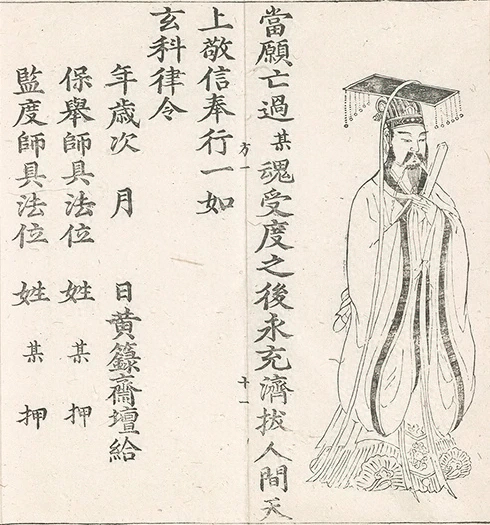 當願亡過某魂受度之後永充濟拔人間天
上敬信奉行一如
玄科律令
年歲次　月　日黃籙齋壇給
保舉師具法位　姓某押
監度師具法位　姓某押
方一
十一